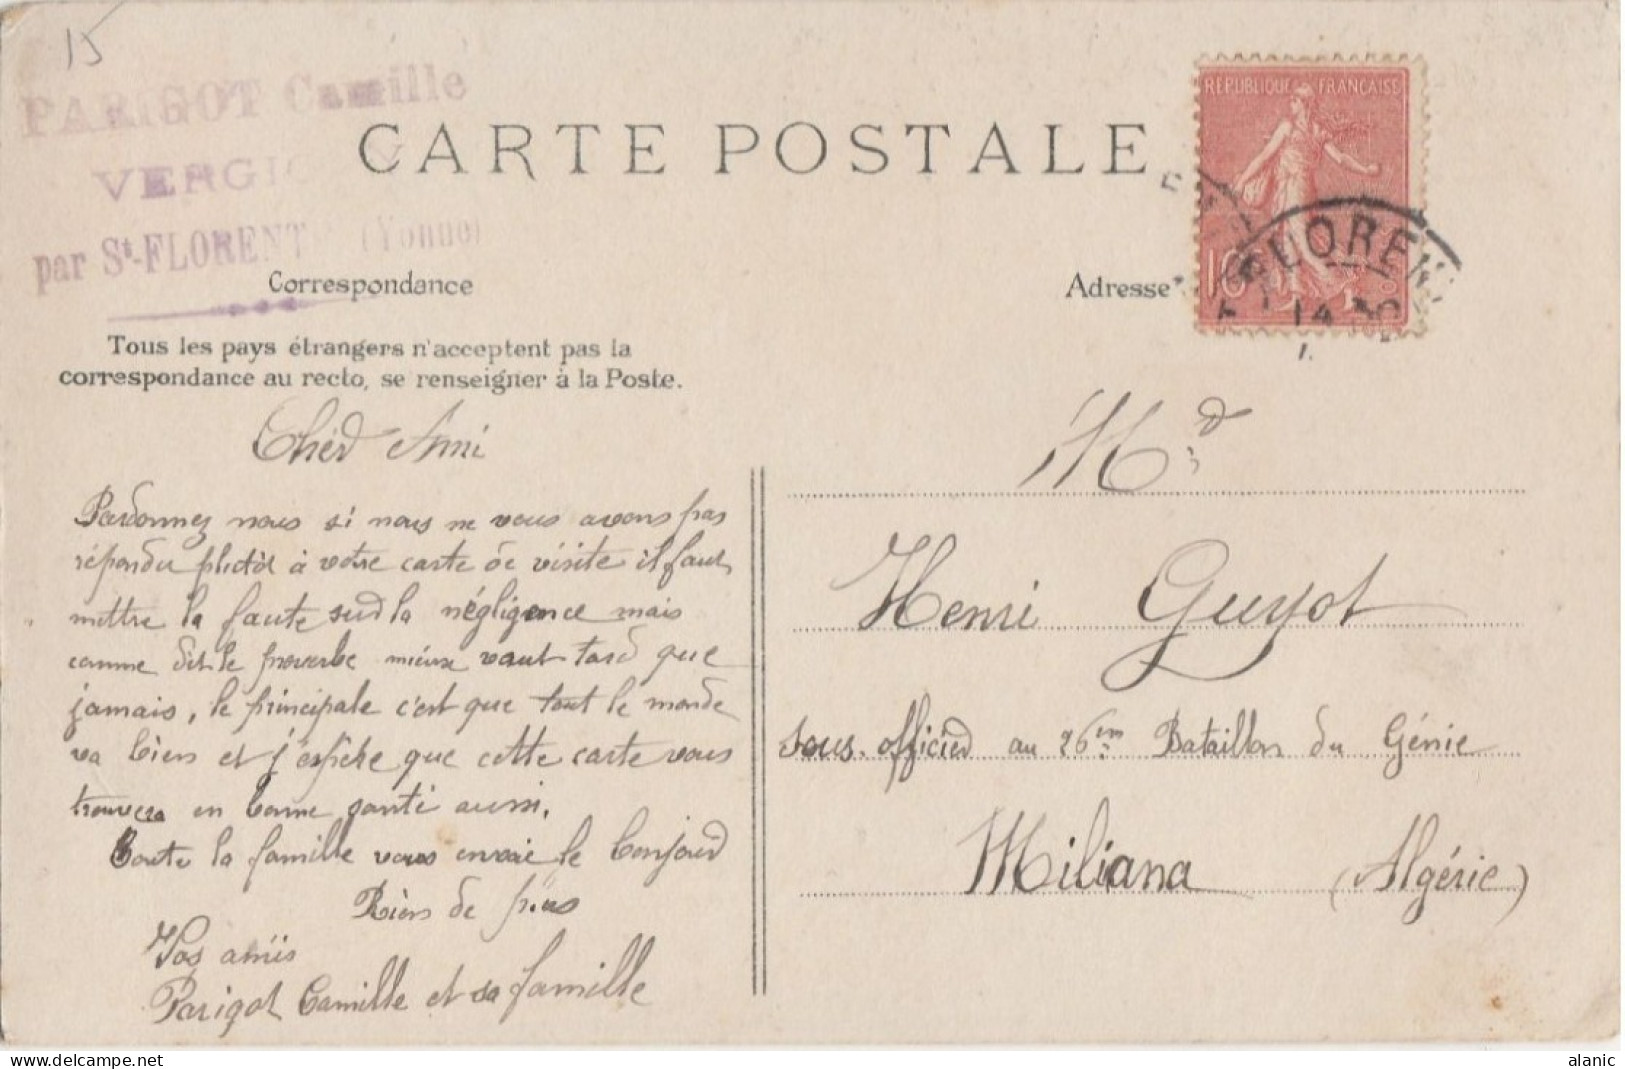 15
PARIGOT Camille
VERGI
par St-FLORENT (Yonne)
CARTE POSTALE
REPUBLIQUE FRANÇAISE
10
FLOREN
14
Correspondance
Adresse
Tous les pays étrangers n'acceptent pas la
correspondance au recto, se renseigner à la Poste.
Cher Ami
Pardonnez nous si nous ne vous avons pas
répondu plutôt à votre carte de visite il faut
mettre la faute sur la négligence mais
comme dit le proverbe mieux vaut tard que
jamais, le principale c'est que tout le monde
va bien et j'espère que cette carte vous
trouvera en bonne santé aussi.
Toute la famille vous envoie le bonjour
Rien de plus
Vos amis
Parigot Camille et sa famille
Mr
Henri Guyot
sous-officier au 26em Bataillon du Génie
Miliana (Algérie)
alanic